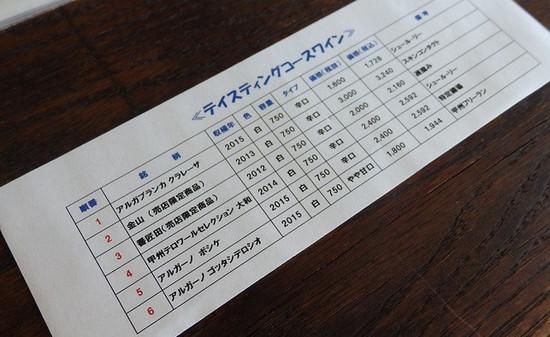 ≪テイスティングコースワイン≫
順番 銘柄 収穫年 色 容量 タイプ 価格(税別) 価格(税込) 備考
1 アルガブランカ クラレーザ 2015 白 750 辛口 1,600 1,728 シュール・リー
2 金山（売店限定商品） 2013 白 750 辛口 3,000 3,240 スキンコンタクト
3 番匠田(売店限定商品) 2012 白 750 辛口 2,000 2,160 澱絡み
4 甲州テロワールセレクション 大和 2014 白 750 辛口 2,400 2,592 シュール・リー
5 アルガーノ ボシケ 2015 白 750 辛口 2,400 2,592 特定農場
6 アルガーノ ゴッタシデロシオ 2015 白 750 やや甘口 1,800 1,944 甲州フリーラン